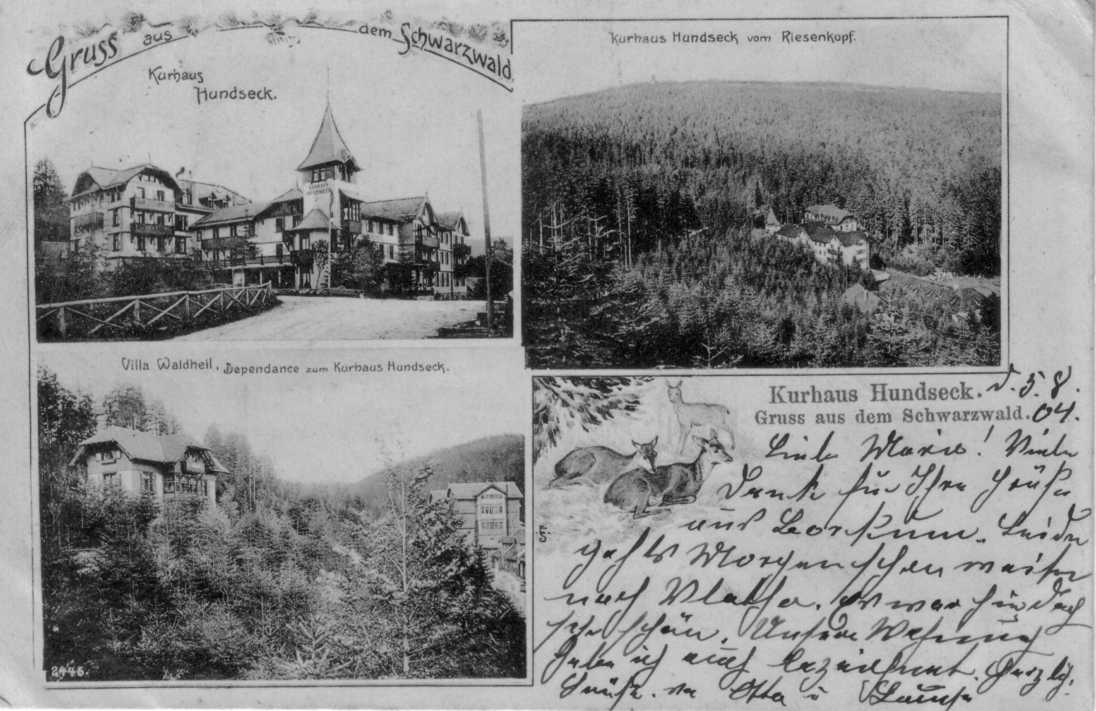 Gruss aus dem Schwarzwald.
Kurhaus
Hundseck.
Kurhaus Hundseck vom Riesenkopf.
Villa Waldheil, Dependance zum Kurhaus Hundseck.
2446.
Kurhaus Hundseck. d. 5. 8.
Gruss aus dem Schwarzwald. 04.
Liebe Marie! Viele
Dank für Ihre Grüße
aus Borkum. Leider
geht's Morgen schon weiter
nach. Es war hier doch
sehr schön. Unsere Wohnung
habe ich auch bezeichnet. Herzlg.
Grüße. von Otto u